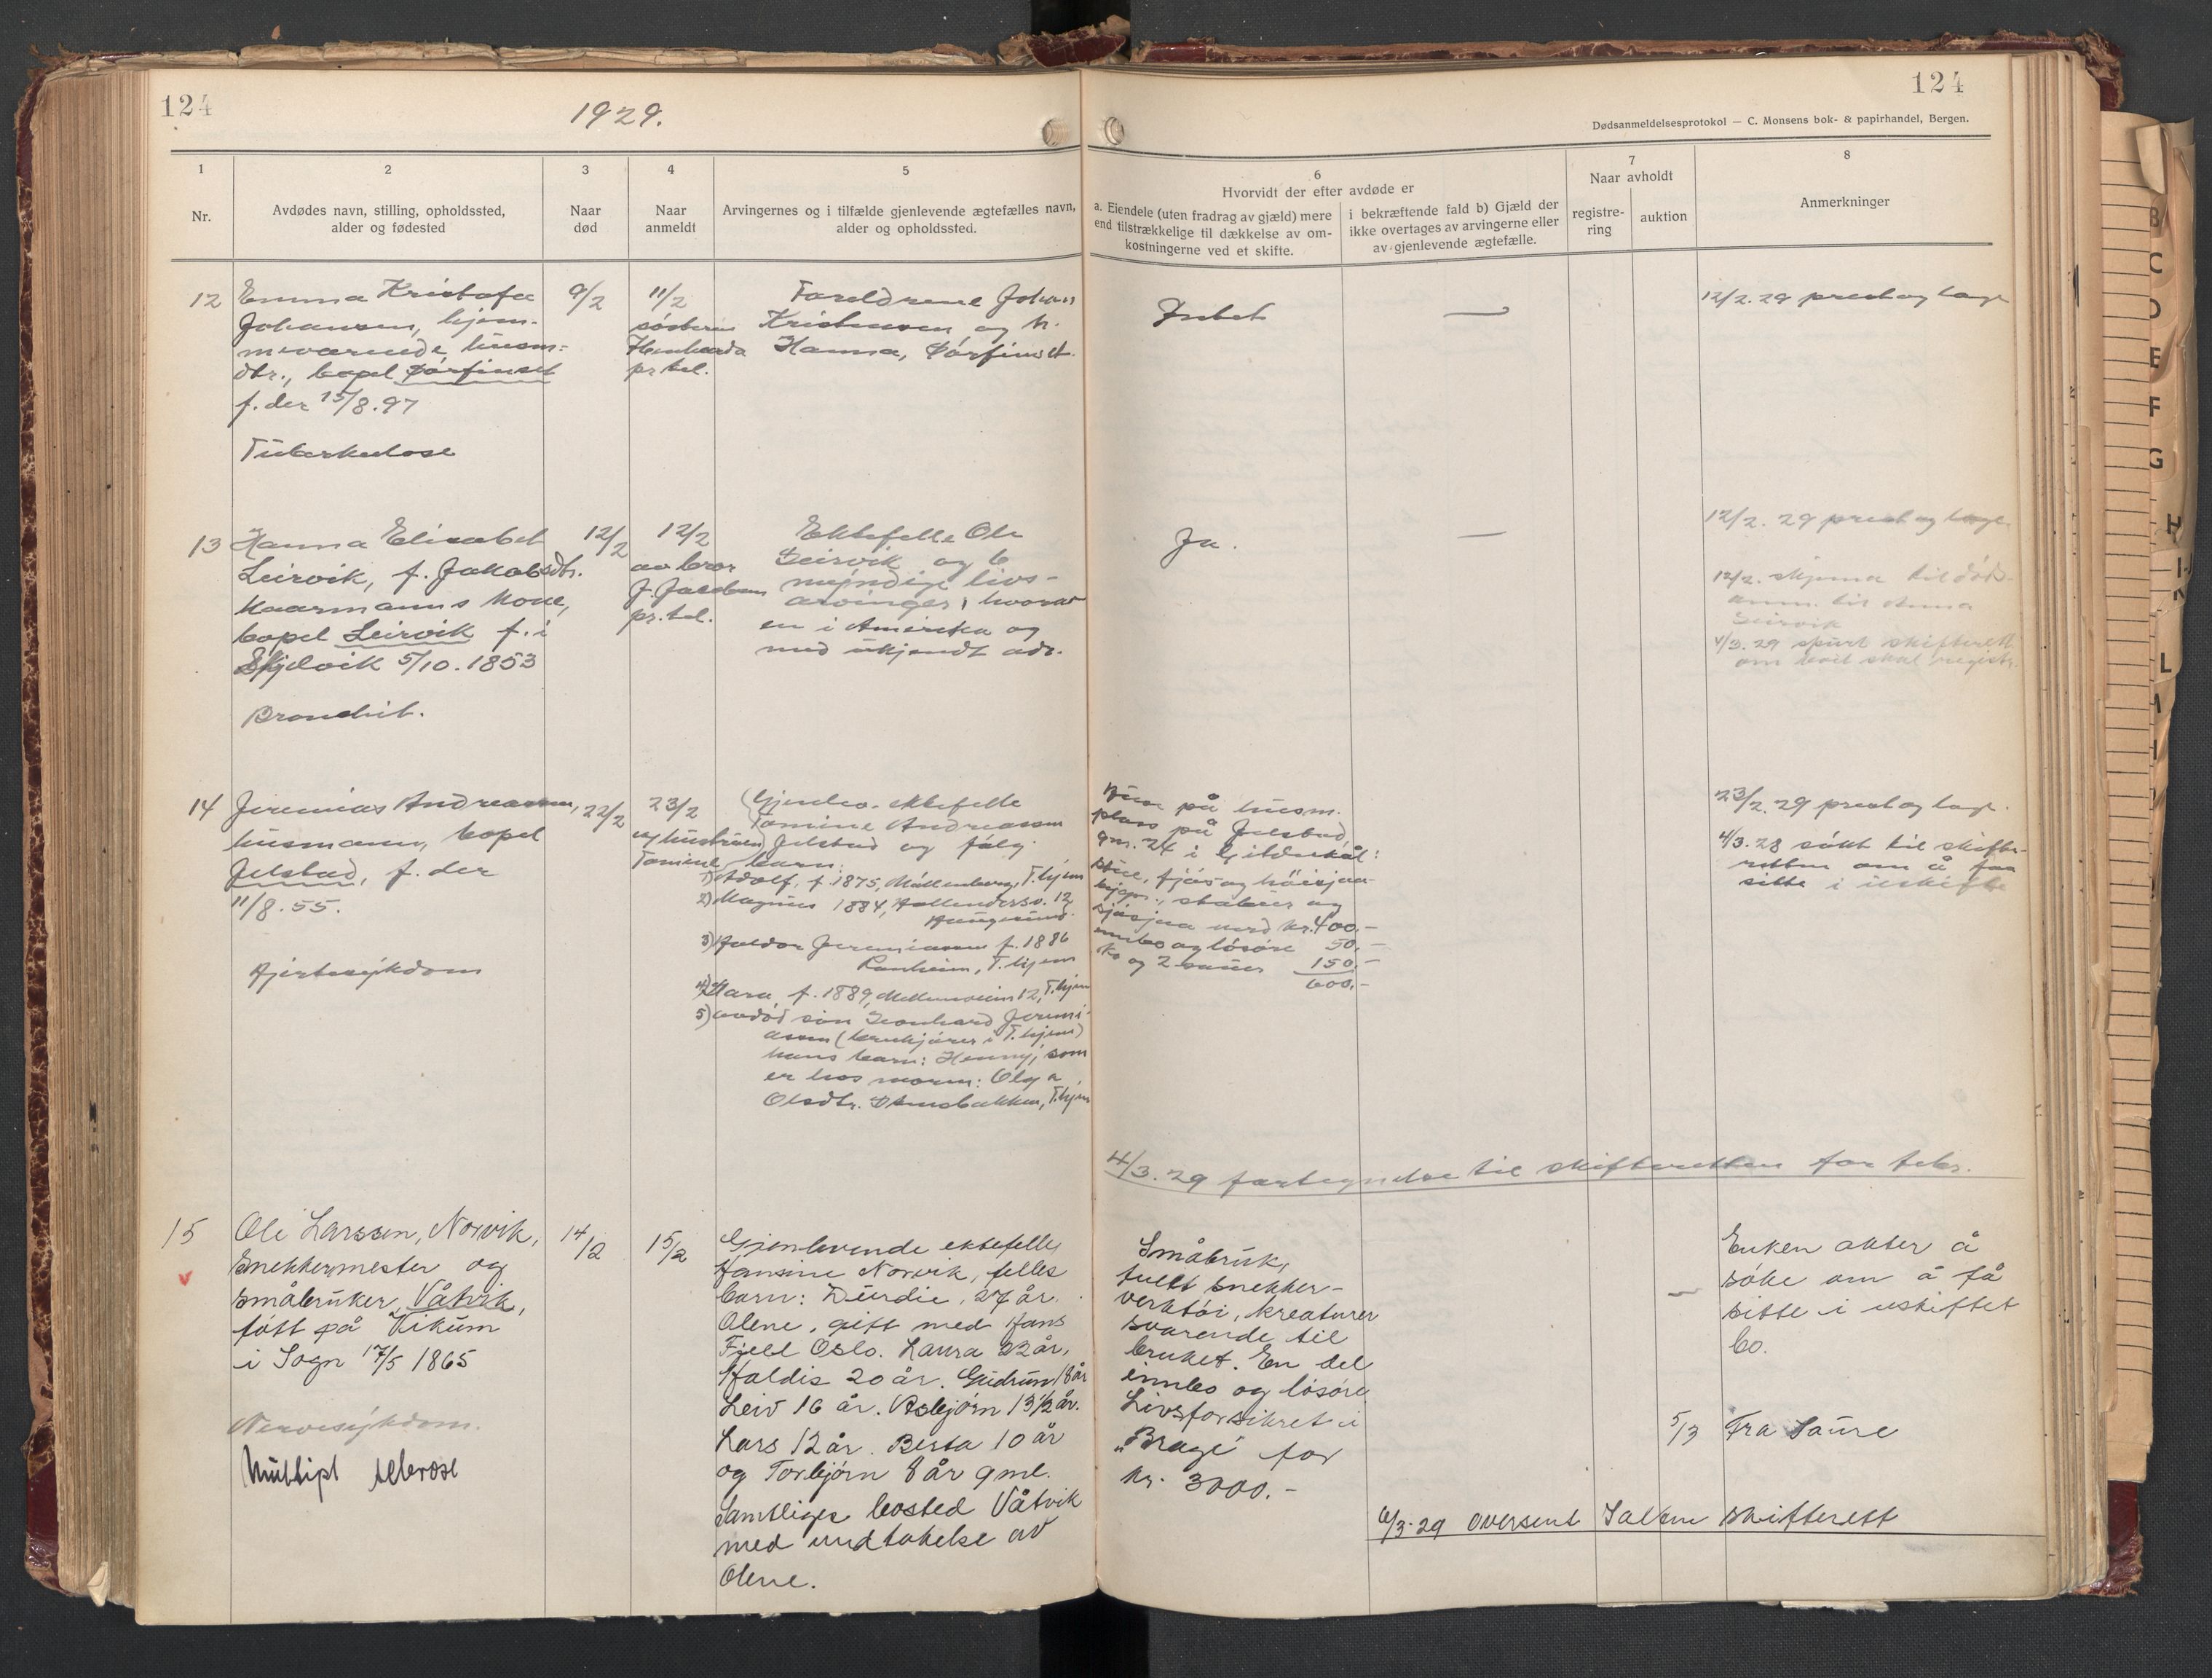 124
1929.
124
Dødsanmeldelsesprotokol — C. Monsens bok- & papirhandel, Bergen.
1
Nr.
2
Avdødes navn, stilling, opholdssted,
alder og fødested
3
Naar
død
4
Naar
anmeldt
5
Arvingernes og i tilfælde gjenlevende ægtefælles navn,
alder og opholdssted.
6
Hvorvidt der efter avdøde er
a. Eiendele (uten fradrag av gjæld) mere
end tilstrækkelige til dækkelse av om-
kostningerne ved et skifte.
i bekræftende fald b) Gjæld der
ikke overtages av arvingerne eller
av gjenlevende ægtefælle.
7
Naar avholdt
registre-
ring
auktion
8
Anmerkninger
12
Emma Kristofa
Johansen, hjem-
meværende husm-
dtr., bopel Dørfinset
f. der 15/8.97
Tuberkulose
9/2
11/2
søsteren
pr tel.
Foreldrene Johan
Kristensen og h.
Hanna, Dørfinset.
Intet
—
12/2.29 prest og lege
13
Hanna Elisabet
Leirvik, f. Jakobsdtr.
kaarmanns kone,
bopel Leirvik f. i
Skjelvik 5/10.1853
Bronchit.
12/2
12/2
av bror
J. Jacobsen
pr. tel.
Ektefelle Ole
Leirvik og 6
myndige livs-
arvinger, hvorav
en i Amerika og
med ukjendt adr.
Ja.
—
12/2.29 prest og lege
12/2. skjema til døds-
anm. til Anna
Leirvik
4/3.29 spurt skifterett
om boet skal registr.
14
Jeremias Andreassen,
husmann, bopel
Jelstad, f. der
11/8.55.
Hjertesykdom
22/2
23/2
av hustruen
Tomine
Gjenlev. ektefelle
Tomine Andreassen
Jelstad og følg.
barn:
1) Adolf, f. 1875, Møllenberg, T.hjem
2) Magnus 1884, 12,
Haugesund.
3) Haldor Jeremiassen f. 1886
Ranheim, T.hjem
4) Klara, f. 1889, 12, T.hjem
5) avdød søn Leonhard Jeremi-
assen (T.hjem)
hans barn: Henny, som
er hos moren: Olga
Olsdtr. Stensbakken, T.hjem
Huse på husm.
plass på Jelstad,
gm. 24 i Gildeskål:
stue, fjøs og
stabur og
sjøsjaa verd kr. 400.-
innbo og løsøre 50.-
Ko og 2 sauer 150.-
600.-
23/2.29 prest og lege.
4/3.28 søkt til skifte-
retten om å faa
sitte i uskifte
4/3.29 fortegnelse til skifteretten for febr.
15
v
Ole Larssen, Norvik,
Snekkermester og
småbruker, Våtvik,
født på Vikum
i Sogn 17/5 1865
Nervesykdom.
Multipl sklerose
14/2
15/2
Gjenlevende ektefelle
Hansine Norvik, felles
barn: Durdie, 27 år.
Olene, gift med Hans
Fjell Oslo. Laura 22 år,
Haldis 20 år. Gudrun 18 år
Leiv 16 år. Asbjørn 13½ år.
Lars 12 år. Berta 10 år
og Torbjørn 8 år gml.
Samtliges bosted Våtvik
med undtakelse av
Olene.
Småbruk,
fullt snekker-
verktøi, kreaturer
svarende til
bruket. En del
innbo og løsøre
Livsforsikret i
„Brage" for
kr. 3000.-
—
Enken akter å
søke om å få
sitte i uskiftet
bo.
5/3 Fra Saure
6/3-29 oversent Salten skifterett
B
C
D
E
F
G
H
L